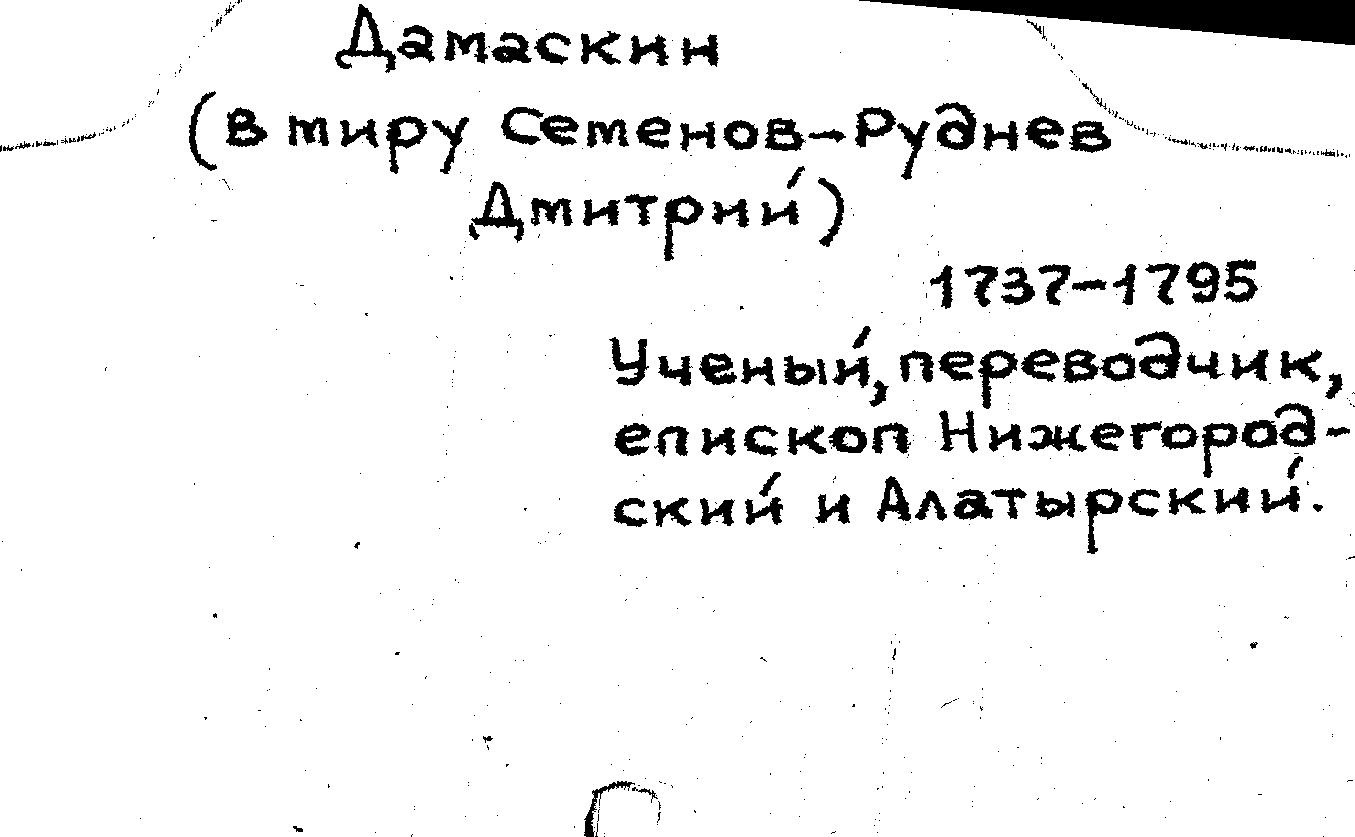 Дамаскин
(в миру Семенов-Руднев
Дмитрий)
1737-1795
Ученый, переводчик,
епископ Нижегород-
ский и Алатырский.